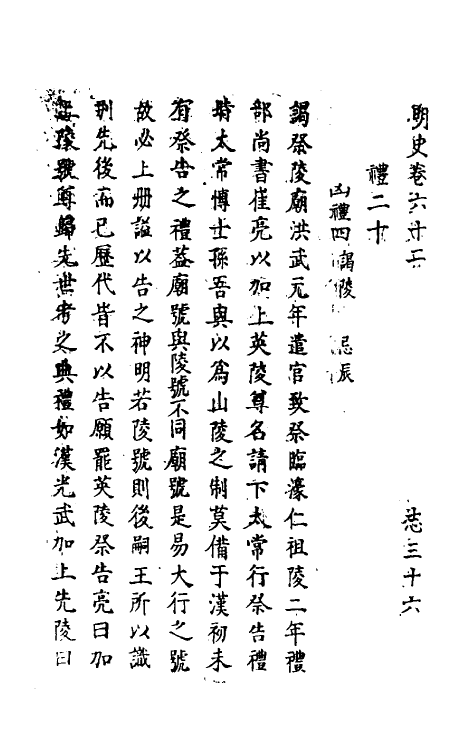 明史卷六十二 志三十六
禮二十
凶禮四 謁陵 忌辰
謁祭陵廟洪武元年遣官致祭臨濠仁祖陵二年禮
部尚書崔亮以加上英陵尊名請下太常行祭告禮
時太常博士孫吾與以爲山陵之制莫備于漢初未
有祭告之禮蓋廟號與陵號不同廟號是易大行之號
故必上册諡以告之神明若陵號則後嗣王所以識
別先後而已歷代皆不以告願罷英陵祭告亮曰加
上陵號尊歸先世考之典禮如漢光武加上先陵曰